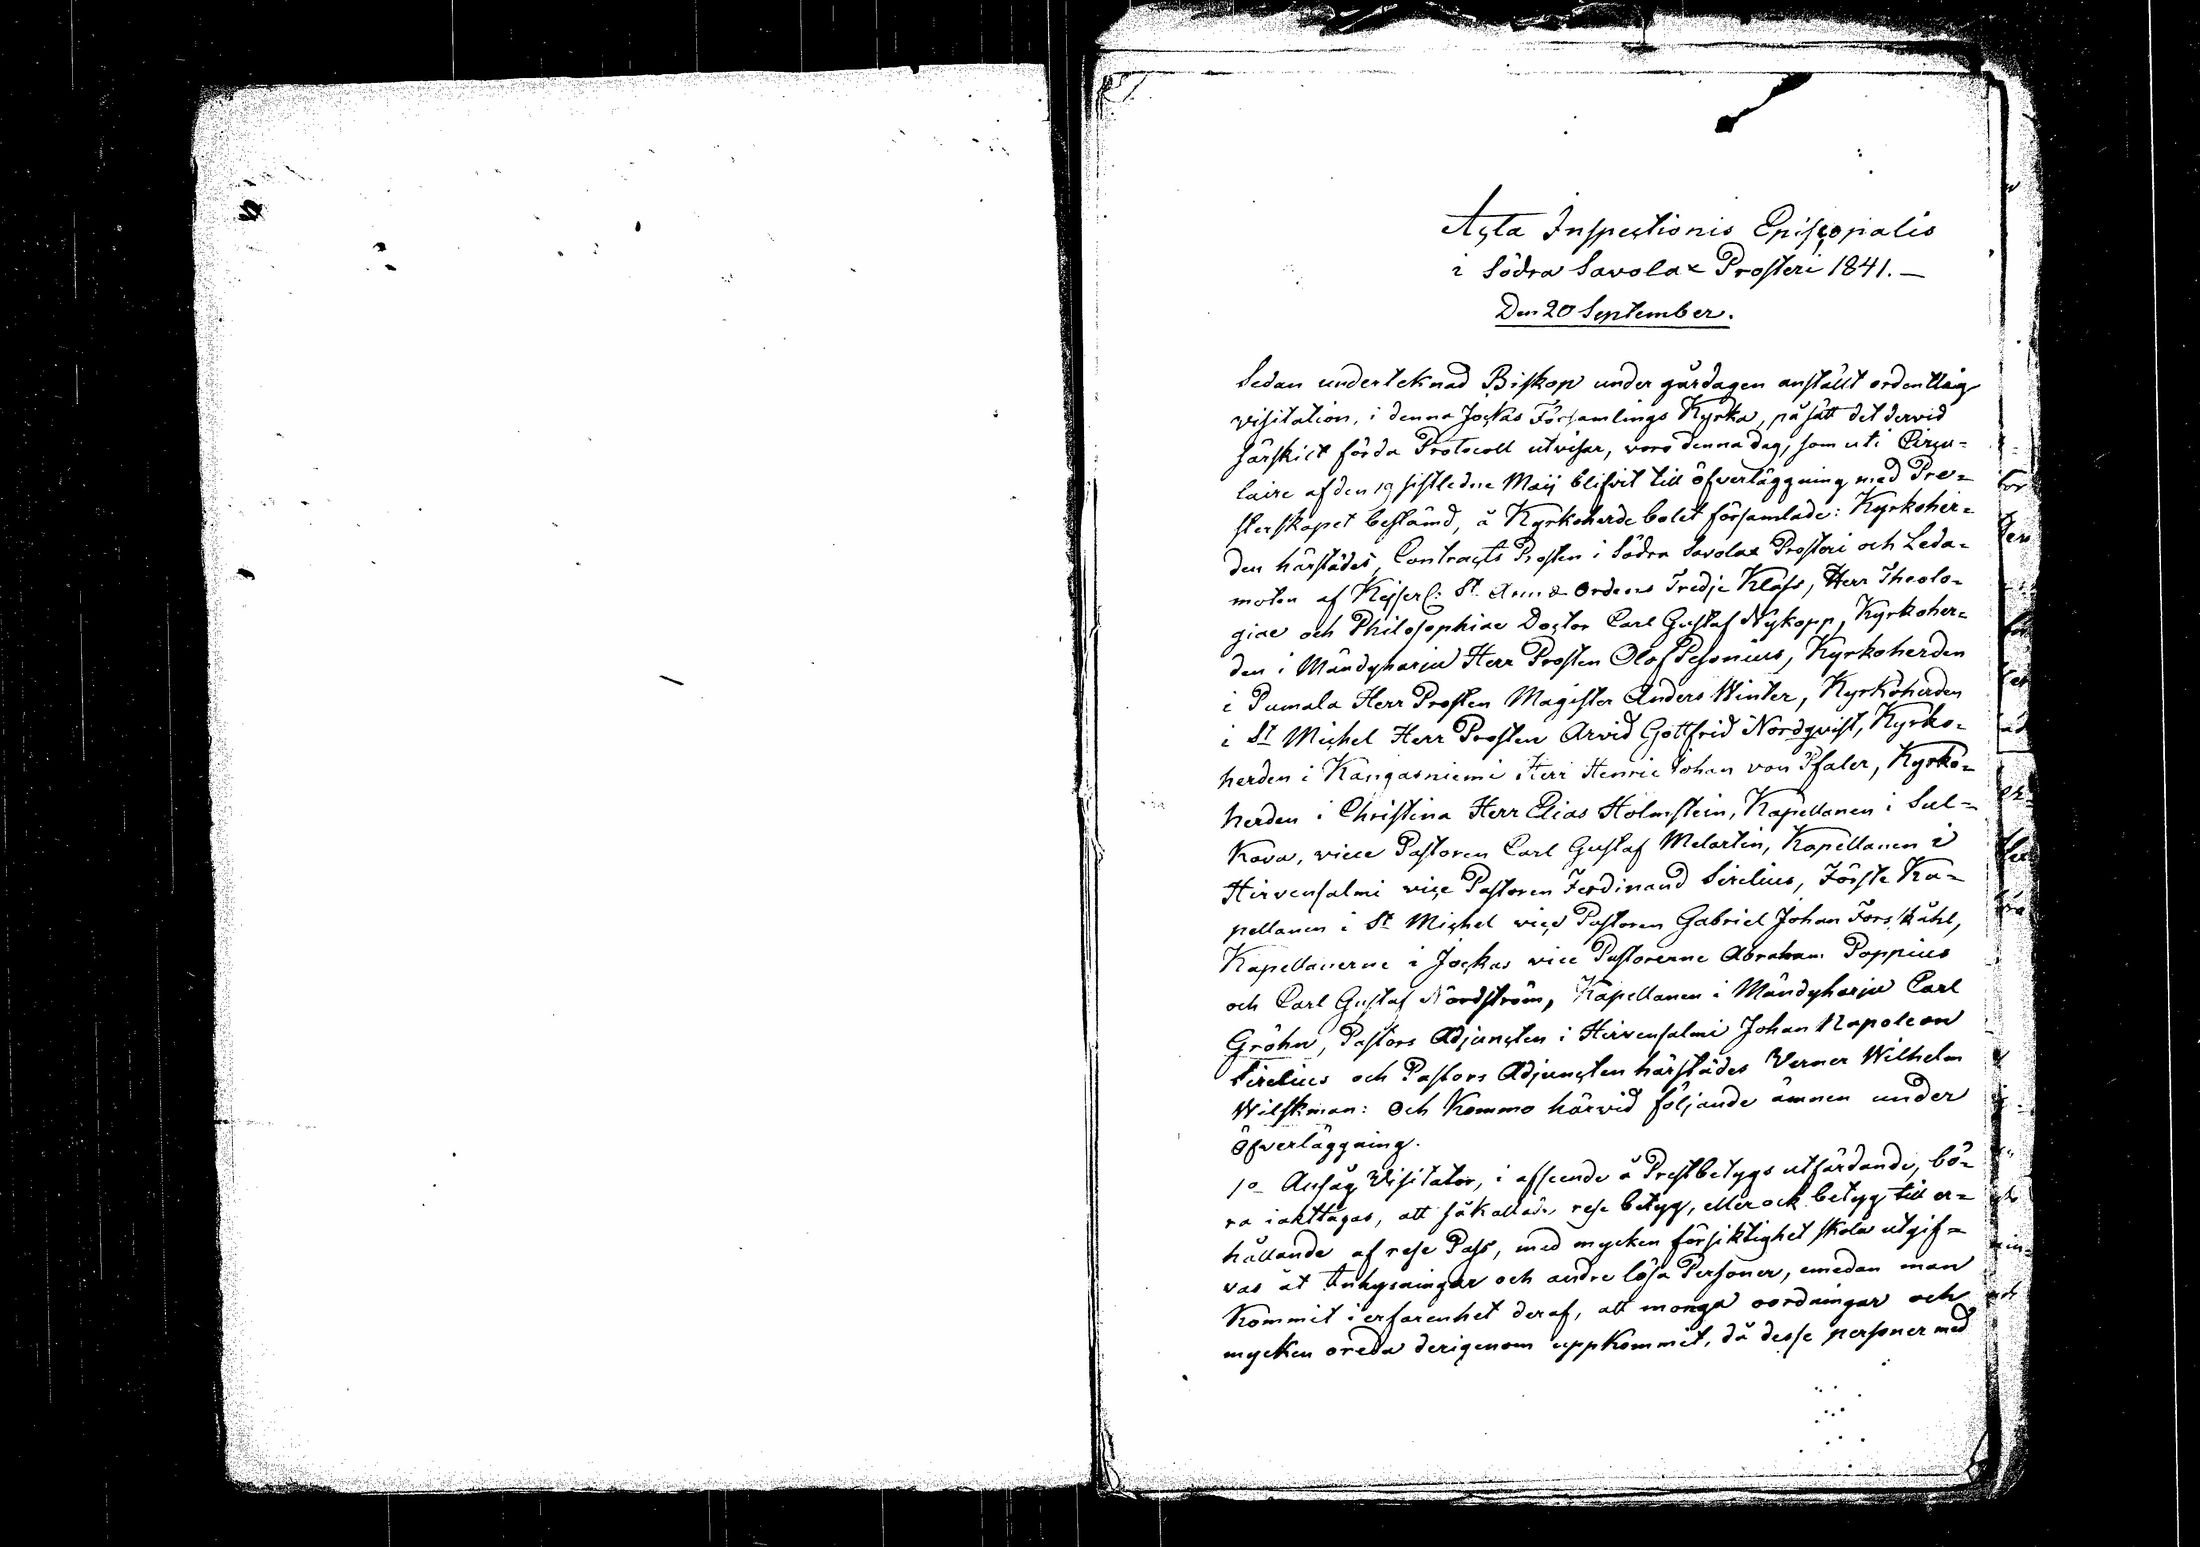 Acta Inspectionis Episcopalis
i Södra Savolax Prosteri 1841.—
Den 20 September.
Sedan underteknad Biskop under gårdagen anstält ordentlig
visitation, i denna Jockas Församlings Kyrka, på sätt det dervid
särskilt förda Protocoll utvisar, voro denna dag, som uti Circu=
laire af den 19 sistledne Maij blifvit till öfverläggning med Pre=
sterskapet bestämd, å Kyrkoherde bolet församlade: Kyrkoher=
den härstädes, Contracts Prosten i Södra Savolax Prosteri och Leda=
moten af Kejserl: St. Annæ Ordens Tredje Klass, Herr Theolo=
giae och Philosophiae Doctor Carl Gustaf Nykopp, Kyrkoher=
den i Mändyharju Herr Prosten Olof Pesonius, Kyrkoherden
i Pumala Herr Prosten Magister Anders Winter, Kyrkoherden
i St Michel Herr Prosten Arvid Gottfrid Nordqvist, Kyrko=
herden i Kangasniemi Herr Henric Johan von Pfaler, Kyrko=
herden i Christina Herr Elias Holmstein, Kapellanen i Sul=
kava, vice Pastoren Carl Gustaf Melartin, Kapellanen i
Hirvensalmi vice Pastoren Ferdinand Sirelius, Förste Ka=
pellanen i St Michel vice Pastoren Gabriel Johan Forsskåhl,
Kapellanerne i Jockas vice Pastorerne Abraham Poppius
och Carl Gustaf Nordström, Kapellanen i Mändyharju Carl
Gröhn, Pastors Adjuncten i Hirvensalmi Johan Napoleon
Sirelius och Pastors Adjuncten härstädes Verner Wilhelm
Wilskman: Och Kommo härvid följande ämnen under
Öfverläggning.
1o Ansåg Visitator, i afseende å Prestbetygs utfärdande, bö=
ra iakttagas, att såkallade rese betyg, eller ock betyg till er=
hållande af rese Pass, med mycken försiktighet skola utgif=
vas åt Inhysningar och andre lösa Personer, emedan man
Kommit i erfarenhet deraf, att monga oordningar och
mycken oreda derigenom uppkommit, då desse personer med